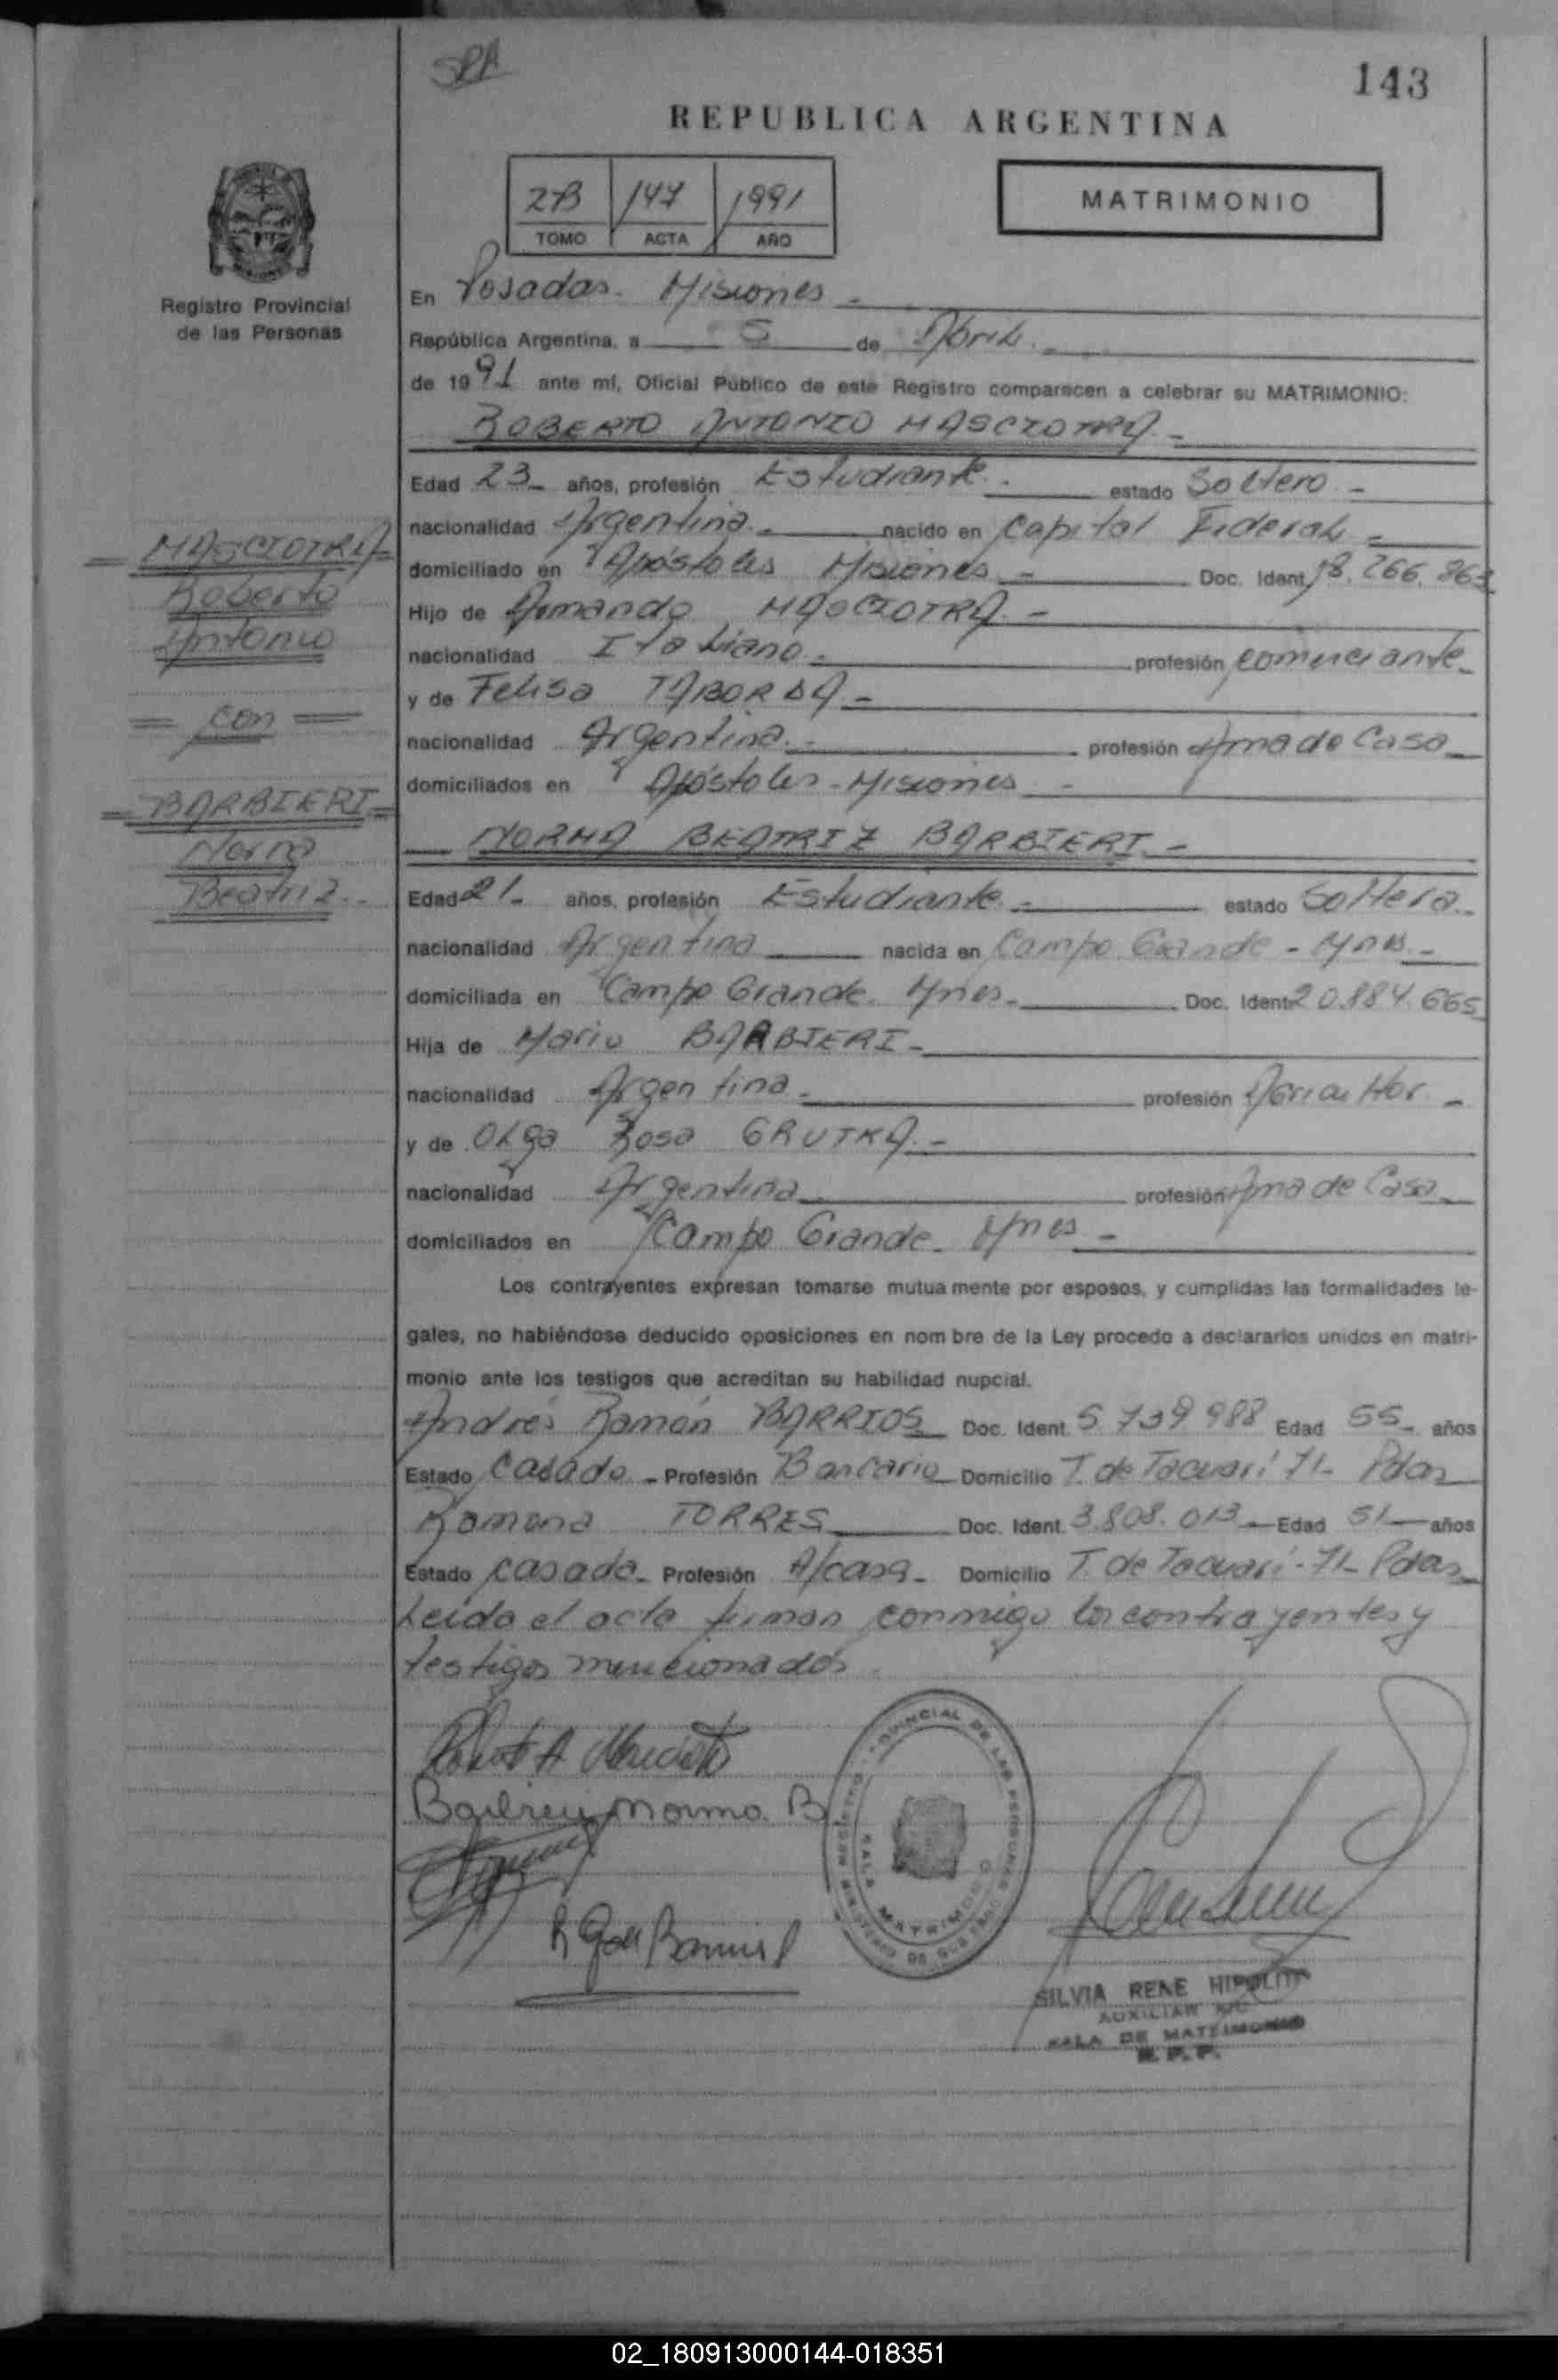 143
REPUBLICA ARGENTINA
2B 147 1991
TOMO ACTA AÑO
MATRIMONIO
Registro Provincial
de las Personas
En Posadas - Misiones -
República Argentina, a 5 de Abril.
de 1991 ante mí, Oficial Público de este Registro comparecen a celebrar su MATRIMONIO:
ROBERTO ANTONIO MASCIOTRA -
Edad 23 años, profesión Estudiante. estado Soltero -
nacionalidad Argentina. nacido en Capital Federal -
domiciliado en Apóstoles Misiones - Doc. Ident. 18.266.863
Hijo de Armando MASCIOTRA -
nacionalidad Italiano. profesión comerciante
y de Felisa TABORDA -
nacionalidad Argentina. profesión Ama de Casa
domiciliados en Apóstoles - Misiones -
MASCIOTRA
Roberto
Antonio
= con =
BARBIERI
Norma
Beatriz
NORMA BEATRIZ BARBIERI -
Edad 21 años, profesión Estudiante. estado Soltera.
nacionalidad Argentina nacida en Campo Grande - Mnes -
domiciliada en Campo Grande. Mnes. Doc. Ident. 20.884.665
Hija de Mario BARBIERI -
nacionalidad Argentina profesión Agricultor. -
y de Olga Rosa GRUTKA. -
nacionalidad Argentina profesión Ama de Casa
domiciliados en Campo Grande. Mnes -
Los contrayentes expresan tomarse mutua mente por esposos, y cumplidas las formalidades le-
gales, no habiéndose deducido oposiciones en nom bre de la Ley procedo a declararlos unidos en matri-
monio ante los testigos que acreditan su habilidad nupcial.
Andrés Ramón BARRIOS Doc. Ident. 5.739.988 Edad 55 años
Estado Casado - Profesión Bancario Domicilio T. de Tacuarí 71 - Pdas
Ramona TORRES Doc. Ident. 3.808.013 Edad 51 años
Estado casada - Profesión A/casa - Domicilio T. de Tacuarí - 71 - Pdas
Leida el acta firman conmigo los contrayentes y
testigos mencionados.
Barbieri Norma B
SALA MATRIMONIO
SILVIA RENE HIPOLITO
AUXILIAR
SALA DE MATRIMONIO
R. P. P.
02_180913000144-018351